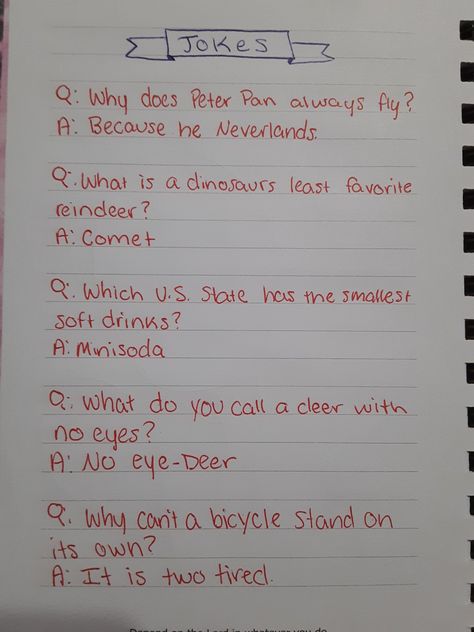 JOKES
Q: Why does Peter Pan always fly?
A: Because he Neverlands.
Q: What is a dinosaurs least favorite
reindeer?
A: Comet
Q: Which U.S. State has the smallest
soft drinks?
A: Minisoda
Q: What do you call a deer with
no eyes?
A: No eye-Deer
Q. Why can't a bicycle stand on
its own?
A: It is two tired.
Depend on the Lord in whatever you do